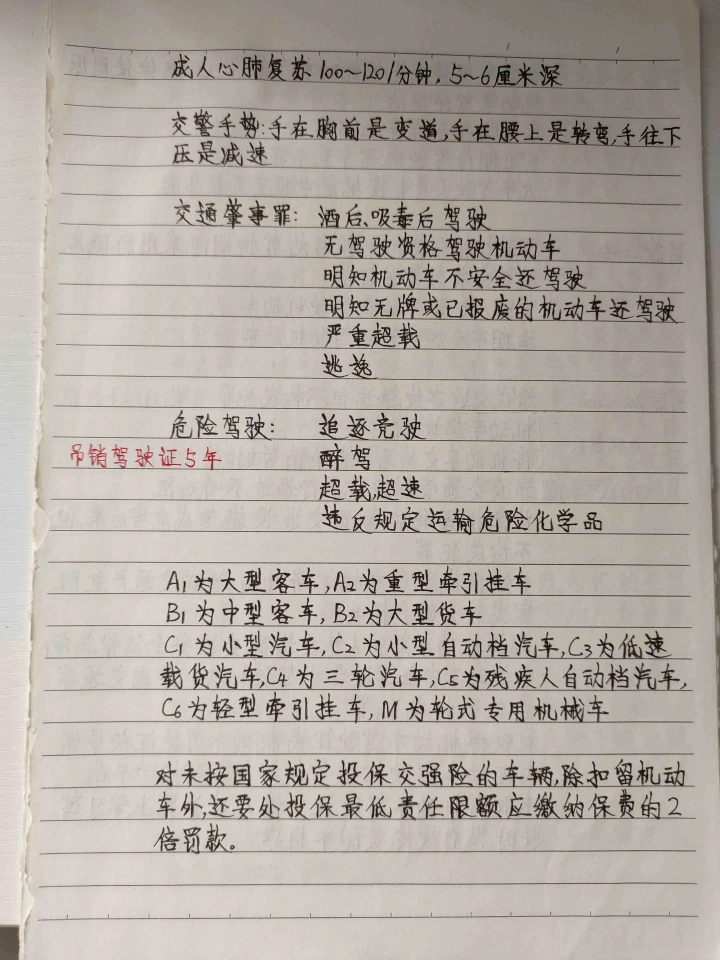 成人心肺复苏100~120/分钟，5~6厘米深
交警手势:手在胸前是变道,手在腰上是转弯,手往下
压是减速
交通肇事罪: 酒后、吸毒后驾驶
无驾驶资格驾驶机动车
明知机动车不安全还驾驶
明知无牌或已报废的机动车还驾驶
严重超载
逃逸
危险驾驶: 追逐竞驶
吊销驾驶证5年 醉驾
超载,超速
违反规定运输危险化学品
A1为大型客车,A2为重型牵引挂车
B1为中型客车,B2为大型货车
C1为小型汽车,C2为小型自动档汽车,C3为低速
载货汽车,C4为三轮汽车,C5为残疾人自动档汽车,
C6为轻型牵引挂车,M为轮式专用机械车
对未按国家规定投保交强险的车辆,除扣留机动
车外,还要处投保最低责任限额应缴纳保费的2
倍罚款。